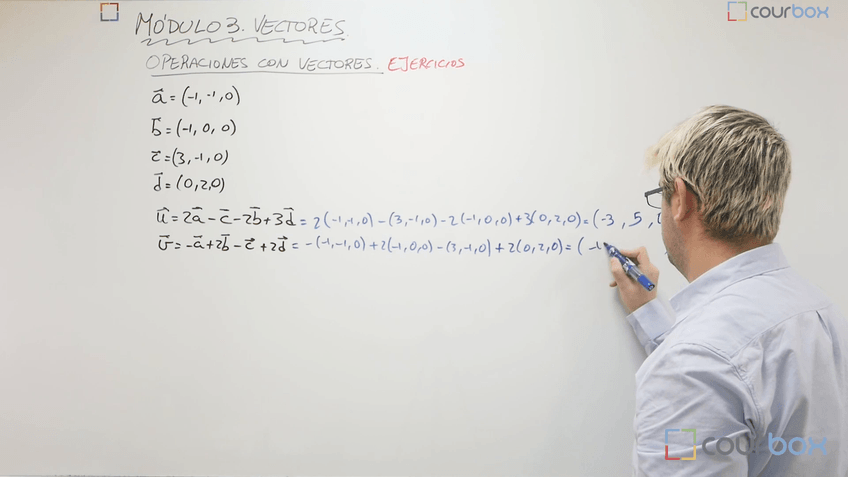 MÓDULO 3. VECTORES
courbox
OPERACIONES CON VECTORES. EJERCICIOS
a⃗ = (-1, -1, 0)
b⃗ = (-1, 0, 0)
c⃗ = (3, -1, 0)
d⃗ = (0, 2, 0)
u⃗ = 2a⃗ - c⃗ - 2b⃗ + 3d⃗ = 2(-1,-1,0) - (3,-1,0) - 2(-1,0,0) + 3(0,2,0) = (-3, 5,
v⃗ = -a⃗ + 2b⃗ - c⃗ + 2d⃗ = -(-1,-1,0) + 2(-1,0,0) - (3,-1,0) + 2(0,2,0) = (
courbox